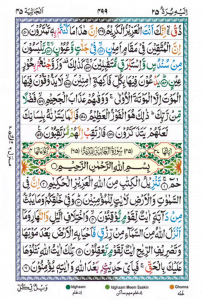 اليه يرد ٢٥ ٤٩٩ الجاثية ٤٥
ذُقْ ۙ اِنَّكَ اَنْتَ الْعَزِيْزُ الْكَرِيْمُ اِنَّ هٰذَا مَا كُنْتُمْ بِهٖ تَمْتَرُوْنَ
اِنَّ الْمُتَّقِيْنَ فِيْ مَقَامٍ اَمِيْنٍ فِيْ جَنّٰتٍ وَّعُيُوْنٍ يَّلْبَسُوْنَ
مِنْ سُنْدُسٍ وَّاِسْتَبْرَقٍ مُّتَقٰبِلِيْنَ كَذٰلِكَ وَزَوَّجْنٰهُمْ بِحُوْرٍ
عِيْنٍ يَدْعُوْنَ فِيْهَا بِكُلِّ فَاكِهَةٍ اٰمِنِيْنَ لَا يَذُوْقُوْنَ فِيْهَا
الْمَوْتَ اِلَّا الْمَوْتَةَ الْاُوْلٰى وَوَقٰىهُمْ عَذَابَ الْجَحِيْمِ فَضْلًا
مِّنْ رَّبِّكَ ذٰلِكَ هُوَ الْفَوْزُ الْعَظِيْمُ فَاِنَّمَا يَسَّرْنٰهُ بِلِسَانِكَ
لَعَلَّهُمْ يَتَذَكَّرُوْنَ فَارْتَقِبْ اِنَّهُمْ مُّرْتَقِبُوْنَ
بِسْمِ اللّٰهِ الرَّحْمٰنِ الرَّحِيْمِ
حٰمٓ تَنْزِيْلُ الْكِتٰبِ مِنَ اللّٰهِ الْعَزِيْزِ الْحَكِيْمِ اِنَّ فِي
السَّمٰوٰتِ وَالْاَرْضِ لَاٰيٰتٍ لِّلْمُؤْمِنِيْنَ وَفِيْ خَلْقِكُمْ وَمَا يَبُثُّ
مِنْ دَآبَّةٍ اٰيٰتٌ لِّقَوْمٍ يُّوْقِنُوْنَ وَاخْتِلَافِ الَّيْلِ وَالنَّهَارِ وَمَآ
اَنْزَلَ اللّٰهُ مِنَ السَّمَآءِ مِنْ رِّزْقٍ فَاَحْيَا بِهِ الْاَرْضَ بَعْدَ مَوْتِهَا
وَتَصْرِيْفِ الرِّيٰحِ اٰيٰتٌ لِّقَوْمٍ يَّعْقِلُوْنَ تِلْكَ اٰيٰتُ اللّٰهِ نَتْلُوْهَا
عَلَيْكَ بِالْحَقِّ فَبِاَيِّ حَدِيْثٍۢ بَعْدَ اللّٰهِ وَاٰيٰتِهٖ يُؤْمِنُوْنَ
Idghaam Idghaam Meem Saakin Ghunna